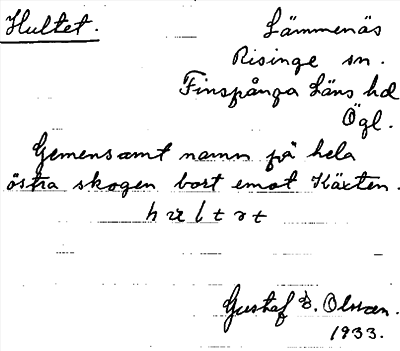 Hultet.
Lämmenäs
Risinge sn.
Finspånga Läns hd
Ögl.
Gemensamt namn på hela
östra skogen bort emot Käxten.
Gustaf E. Olsson.
1933.